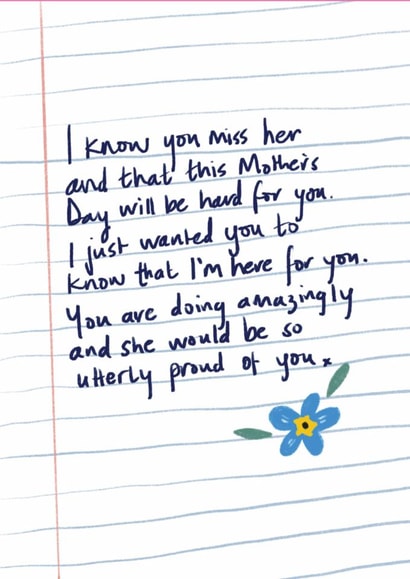 I know you miss her
and that this Mother's
Day will be hard for you.
I just wanted you to
know that I'm here for you.
You are doing amazingly
and she would be so
utterly proud of you x